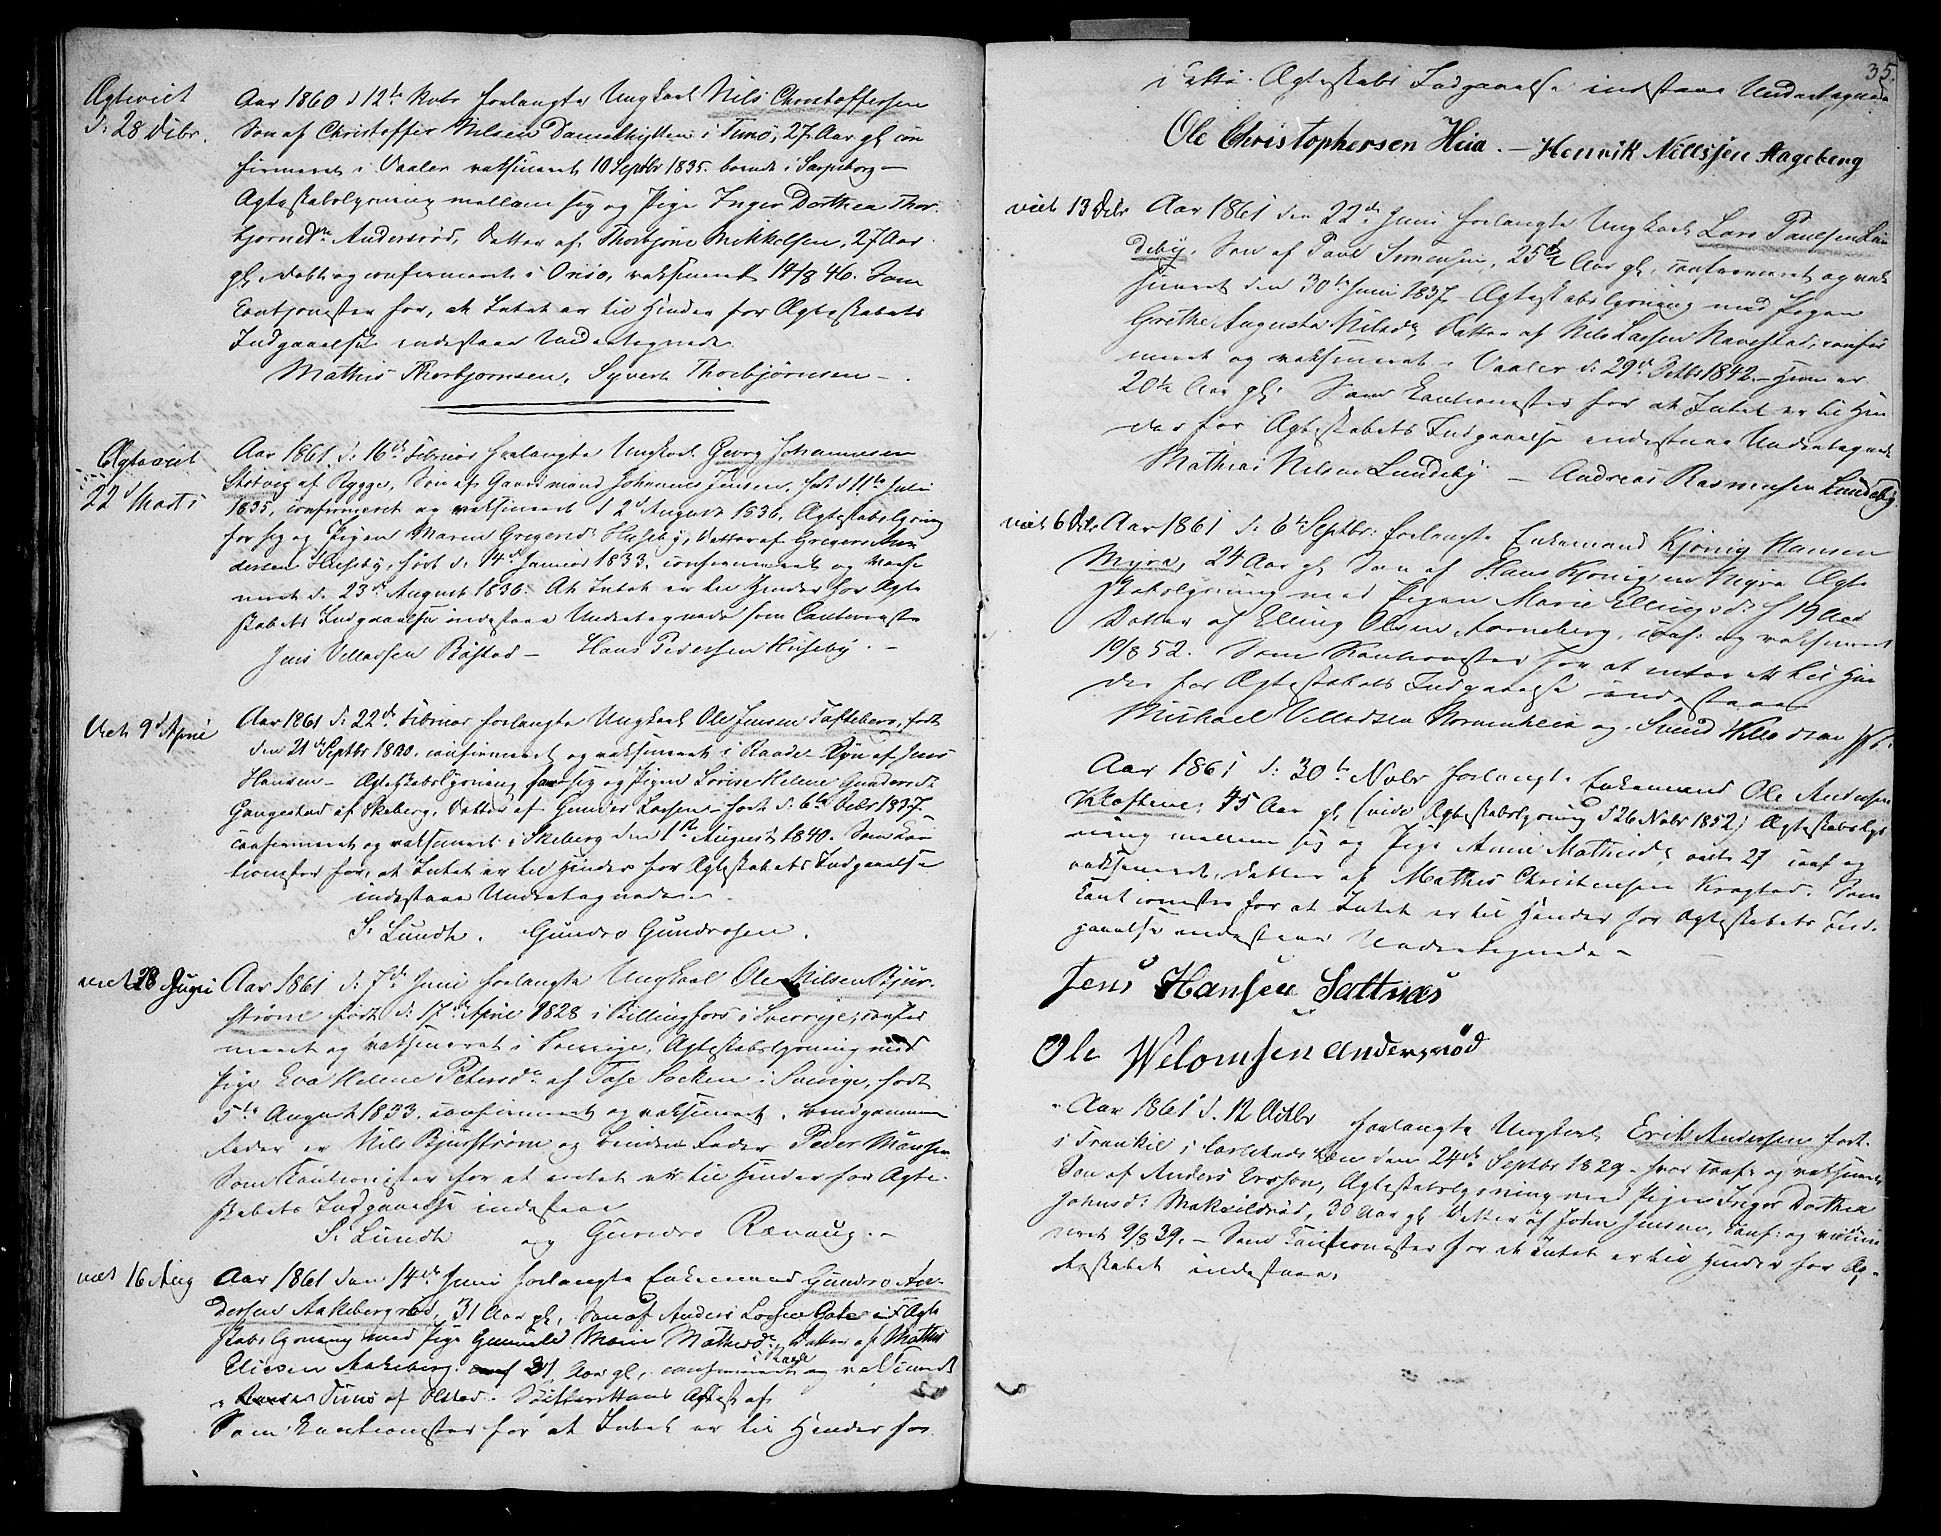 Ægteviet
d: 28 Decbr.
Aar 1860 d 12te Novbr forlangte Ungkarl Nils Christoffersen
Søn af Christoffer Nilsen Damelhytten i Tunø, 27 Aar gl con
firmeret i Vaaler vaksineret 10 Septbr 1835. boende i Sarpsborg –
Ægteskabslysning mellem sig og Pige Inger Dorthea Thor
bjornsdr Andersrød, Datter af Thorbjørn Mikkelsen, 27 Aar
gl. døbt og confirmeret i Onsø, vaksineret 14/8 40. Som
Cautionister for, at Intet er til Hinder for Ægteskabets
Indgaaelse indestaae Undertegnede
Mathis Thorbjornsen, Syvert Thorbjørnsen –
Ægteviet
22 Marts
Aar 1861 d: 16de Februar forlangte Ungkarl Georg Johannesen
Støtvig af Rygge, Søn af Gaardmand Johannes Jensen, født d 11te Juli
1835, confirmeret og vaksineret d 2d August 1836. Ægteskabslysning
for sig og Pigen Maren Gregersdr Huseby, Datter af Gregers An
dersen Huseby, født d. 14de Januar 1833, confirmeret og vaksi
neret d. 23de August 1836. At Intet er til Hinder for Ægte
skabets Indgaaelse indestaae Undertegnede som Cautionister
Jens Villadsen Bøstad – Hans Pedersen Huseby. –
Viet 9d April
Aar 1861 d: 22de Februar forlangte Ungkarl Ole Jensen Tofteberg, født
den 21de Septbr 1820. confirmeret og vaksineret i Raade – Søn af Jens
Hansen – Ægteskabslysning for sig og Pigen Lovise Helene Gundersdr
Gangestad af Skeberg, Datter af Gunder Larsen – født d: 6te Decbr 1837.
confirmeret og vaksineret i Skeberg den 1ste August 1840. Som Cau
tionister for, at Intet er til Hinder for Ægteskabets Indgaaelse
indestaae Undertegnede –
S. Lundh. Gundro Gundrosen.
viet 28 Juni
Aar 1861 d: 7de Juni forlangte Ungkarl Ole Nilsen Bjur
strøm født d: 17de April 1828 i Billingfors i Sverrige, confir
meret og vaksineret i Sverrige, Ægteskabslysning med
Pige Eva Helene Petersdr af Tøse Socken i Sverige, født
5te August 1833. confirmeret og vaksineret. Brudgommens
Fader er Nils Bjurstrøm og Brudens Fader Peder Månsen
Som Cautionister for at intet er til Hinder for Ægte
skabets Indgaaelse indestaae
S. Lundh og Gundro Rævaug. –
viet 16 Aug
Aar 1861 den 14de Juni forlangte Enkemand Gundro An
dersen Aakebergrød, 31 Aar gl, Søn af Anders Larsen Ægte
skabslysning med Pige Gunnild Marie Mathisdr, Datter af Mathis
Eliesen Aakeberg. 31 Aar gl, confirmeret i Raade og vaksineret
i Tunø af Olstad. Skifterettens Attest af
Som Cautionister for at Intet er til Hinder for
35.
dette Ægteskabs Indgaaelse indestaae Undertegnede
Ole Christophersen Heia. – Henrik Nillssen Aageberg
viet 13 Decbr
Aar 1861 den 22de Juni forlangte Ungkarl Lars Paulsen Lun
deby, Søn af Paul Simensen, 25½ Aar gl, confirmeret og vak
sineret den 30te Juni 1837 – Ægteskabslysning med Pigen
Grethe Augusta Nilsdr, Datter af Nils Larsen Navestad, confir
meret og vaksineret i Vaaler d: 29de Octbr 1842 – Hun er
20½ Aar gl. Som Cautionister for at Intet er til Hin
der for Ægteskabets Indgaaelse indestaae Undertegnede
Mathias Nilsen Lundeby – Andreas Rasmusen Lundeby
viet 6 Decbr
Aar 1861 d. 6te Septbr. forlangte Enkemand Kjønig Hansen
Myra, 24 Aar gl Søn af Hans Kjønigsen Myra Ægte
skabslysning med Pigen Marie Ellingsdr 19 Aar
Datter af Elling Olsen Aarneberg, conf: og vaksineret
19/8 52. Som Kautionister for at intet er til Hin
der for Ægteskabets Indgaaelse indestaae
Michael Villadsen Nornenheia og Svend
Aar 1861 d: 30te Novbr forlangte Enkemand Ole Andersen
Kloftene, 45 Aar gl (vide Ægteskabslysning d 26 Novbr 1852) Ægteskabslys
ning mellem sig og Pige Anne Mathisdr, 27 conf og
vaksineret, Datter af Mathis Christensen Kragstad. Som
Cautionister for at Intet er til Hinder for Ægteskabets Ind
gaaelse indestaae Undertegnede –
Jens Hansen Saltnæs
Ole Welomsen andersrød
Aar 1861 d. 12 Octbr forlangte Ungkarl Erik Andersen født
i Frankil i Carlstads Læn den 24de Septbr 1829 – hvor conf: og vaksineret
Søn af Anders Ersson, Ægteskabslysning med Pigen Inger Dorthea
Johnsdr Makeildrød, 30 Aar gl Datter af John Jensen, conf: og vaksine
neret 9/8 39. – Som Cautionister for at Intet er til Hinder for Æg
teskabet indestaae.